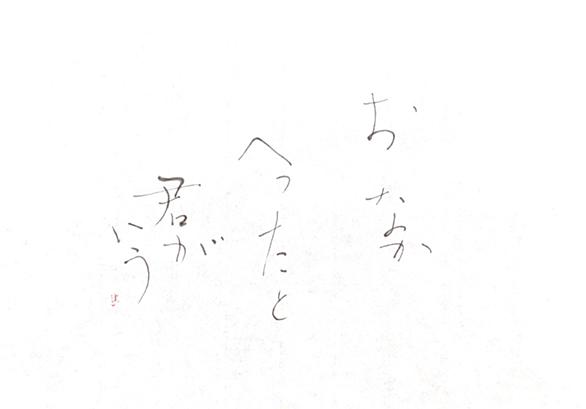 おなか
へったと
君が
いう